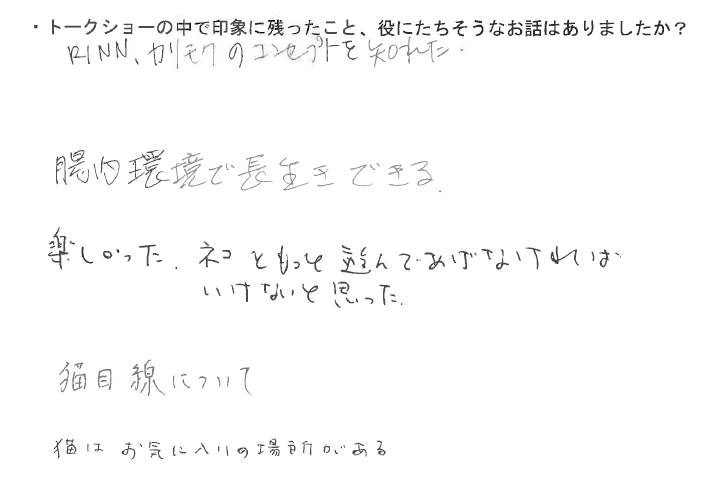 ・トークショーの中で印象に残ったこと、役にたちそうなお話はありましたか？
RINN、カリモクのコンセプトを知れた．
腸内環境で長生きできる．
楽しかった．ネコともっと遊んであげなければ
いけないと思った．
猫目線について
猫はお気に入りの場所がある